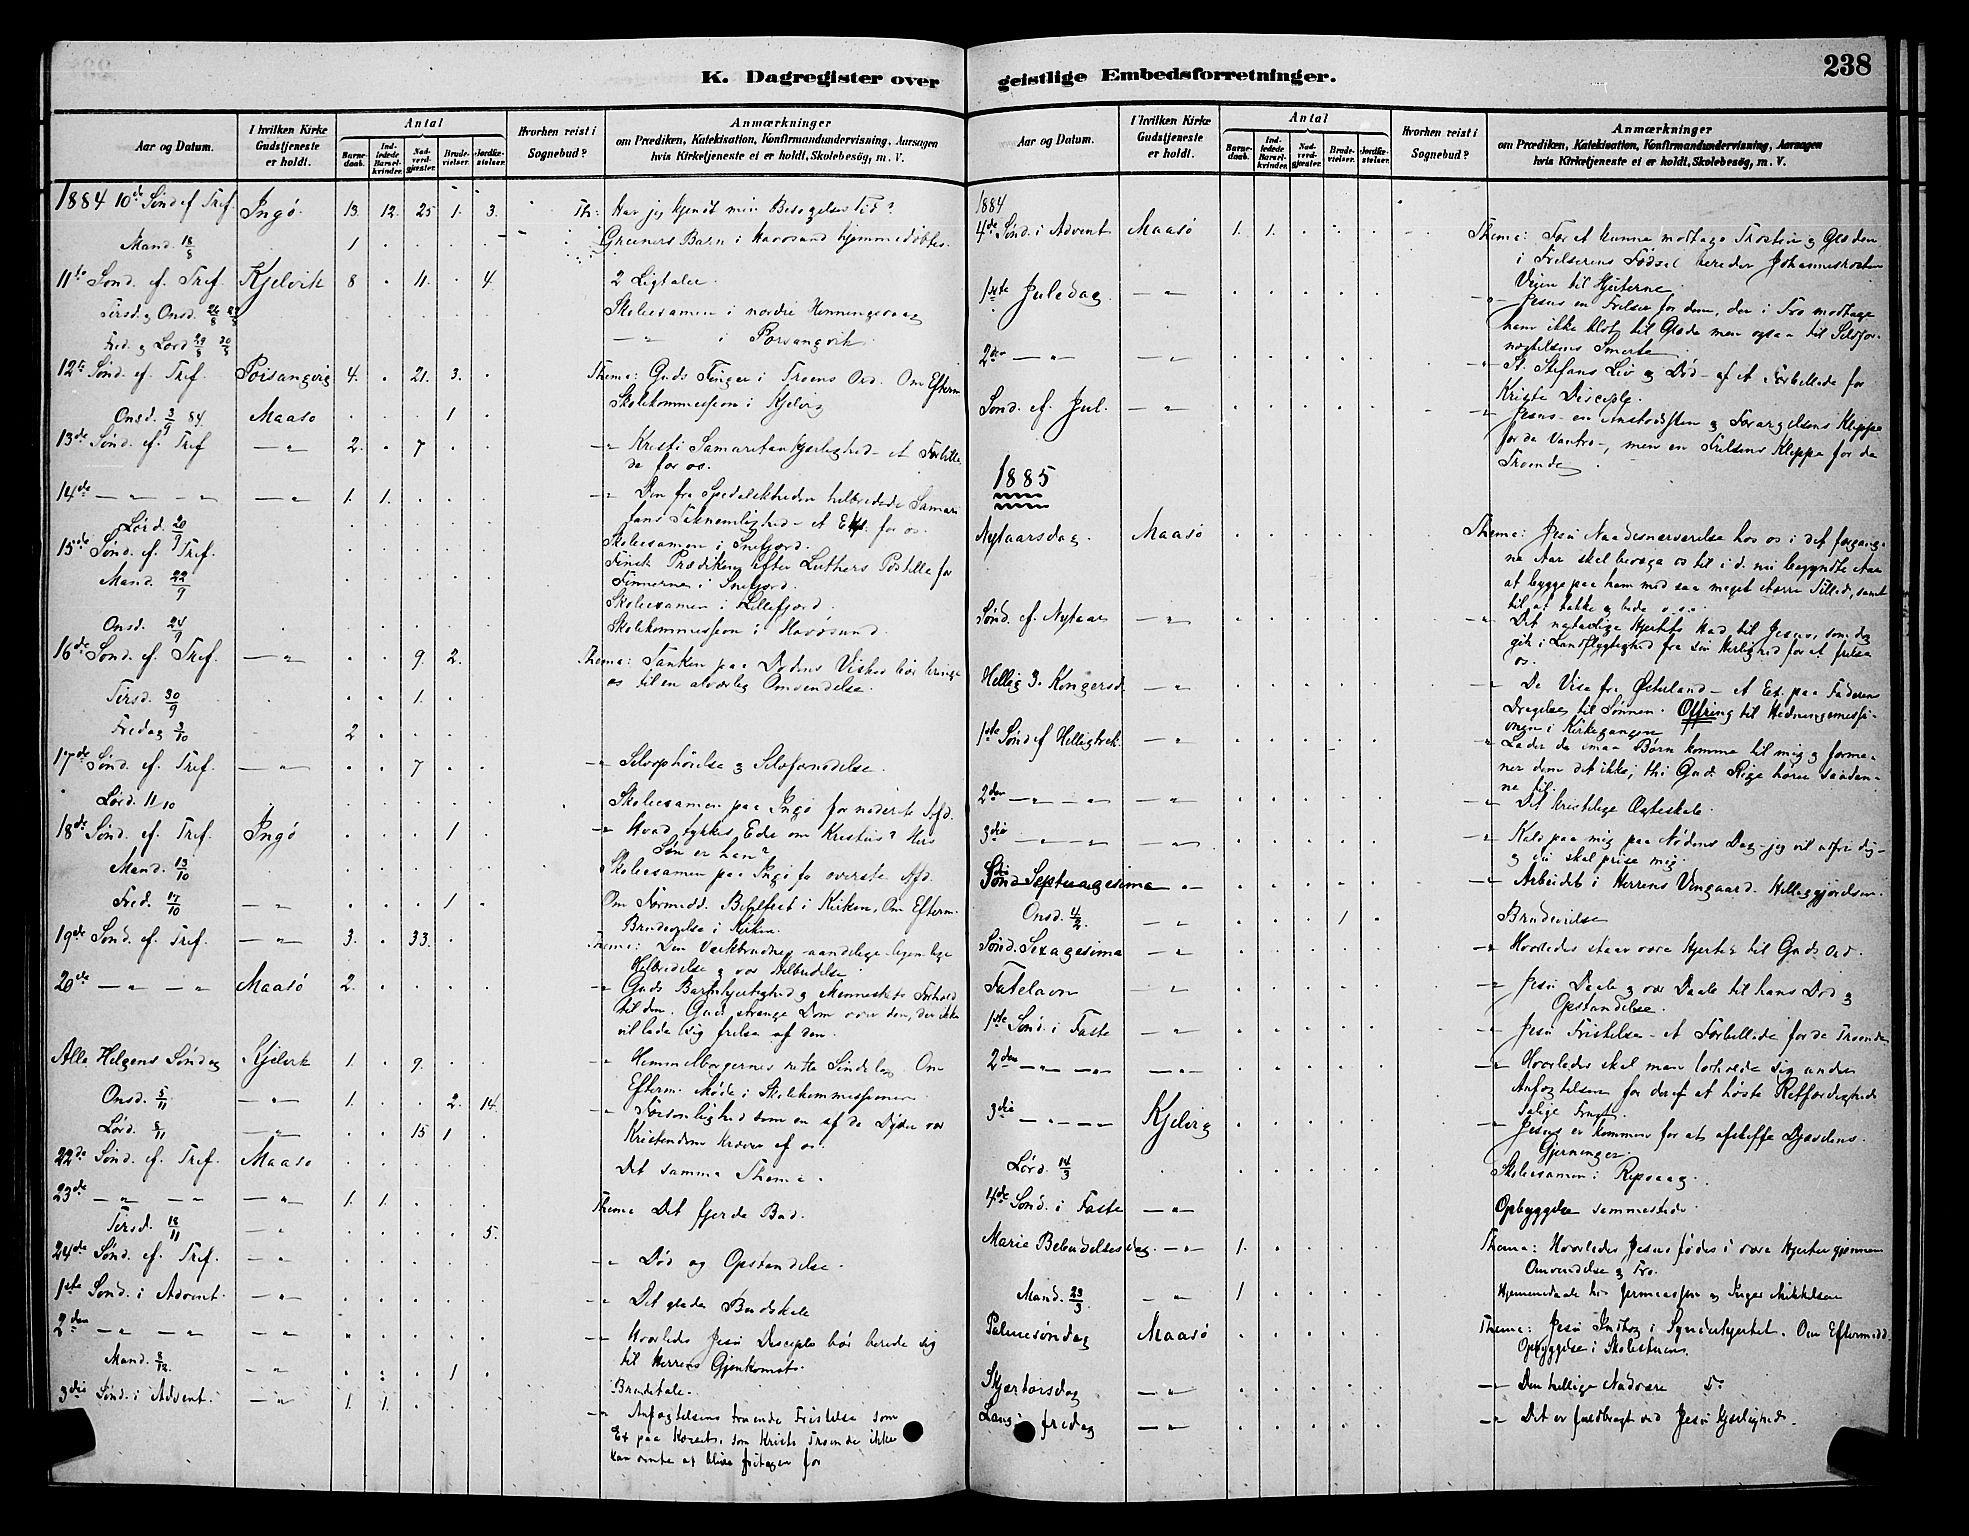 K. Dagregister over
Aar og Datum.
I hvilken Kirke Gudstjeneste er holdt.
Antal
Barnedaab.
Indledede Barselkvinder.
Nadverdgjæster.
Brudevielser.
Jordfæstelser.
Hvorhen reist i Sognebud?
Anmærkninger
om Prædiken, Katekisation, Konfirmandundervisning, Aarsagen
hvis Kirketjeneste ei er holdt, Skolebesög, m. V.
1884 10de Sönd ef Tref. Ingö. 13. 12. 25 1. 3. Th: Har jeg kjendt min Besøgelses Tid?
Mand. 18/8 1 Greeners Barn i Havösund hjemmedöbtes.
11te Sönd. ef. Tref. Kjelvik 8 11. 4. 2 Ligtaler.
Tirsd. og Onsd. 26/8 27/8 Skoleexamen i nordre Honningsvaag
Fred. og Lørd 29/8 30/8 — " — i Porsangvik.
12te Sönd. ef. Tref. Porsangvig 4. 21. 3. Thema: Guds Finger i Troens Ord. Om Efterm
Onsd. 3/9 84. Maasö 1 Skolekommission i Kjelvig
13de Sönd. ef. Tref — " — 2. 7 — " Kristi Samaritan Kjærlighed - et Forbille-
de for os.
14de — " — " — — " — 1. 1. — " Den fra Spedalskheden helbredede Samari
tans Taknemlighed - et Ex. for os.
Lörd. 20/9 Skoleexamen i Snefjord.
15de Sönd. ef. Tref. Finsk Prædiken efter Luthers Postille for
Finnerne i Snefjord.
Mand. 22/9 Skoleexamen i Lillefjord.
Onsd. 24/9 Skolekommission i Havösund.
16de Sönd. ef. Tref. — " — 9. 2. Thema: Tanken paa Dødens Vished bör bringe
os til en alvorlig Omvendelse.
Tirsd. 30/9 1.
Fredag 3/10 2.
17de Sönd. ef. Tref. — " — 7 — " Selvophöielse og Selvfornedelse.
Lörd. 11/10 Skoleexamen paa Ingö for nederste Afd.
18de Sönd. ef. Tref. Ingö 1 — " Hvad tykkes Eder om Kristus? Hvis
Sön er han?
Mand. 13/10 Skoleexamen paa Ingö for överste Afd.
Fred. 17/10 — " — 1 Om Formidd. i Kirken, Om Efterm.
Brudevielse i Kirken.
19de Sönd. ef. Tref. — " — 3. 33. Thema: Den Værkbrudnes aandelige - legemlige
Helbredelse og vor
20de — " — " — Maasö 2. — " Guds Barmhjertighed og Menneskets Forhold
til den. Guds strenge Dom over dem, der ikke
vil lade sig frelse af den.
Alle Helgens Söndag Kjelvik 1. 9. — " Himmelborgernes rette Sindelag. Om
Efterm. Möde i Skolekommissionen.
Onsd. 5/11 — " — 1. 2. 14. — " Forsonlighed som en af de Dyder vor
Lörd. 8/11 — " — 15 1 Kristendom kræver af os.
22de Sönd. ef. Tref. Maasö Det samme Thema.
23de — " — " — — " — 1. 1. Thema Det fjerde Bud.
Tirsd. 18/11 — " 5.
24de Sönd. ef. Tref. — " — " Död og Opstandelse.
1ste Sönd. i Advent. — " — — " Det glade Budskab
2den — " — " — — " — — Hvorledes Jesu Disciple bör berede sig
til Herrens Gjenkomst.
Mand. 8/12. — " — 1 Brudetale.
3die Sönd. i Advent. — " — 1. 1. — " Anfægtelsens troende Fristelse som
Ex paa Korset, som Kristi Troende ikke
kan vente at blive fritagen for

geistlige Embedsforretninger.
238
Aar og Datum.
I hvilken Kirke Gudstjeneste er holdt.
Antal
Barnedaab.
Indledede Barselkvinder.
Nadverdgjæster.
Brudevielser.
Jordfæstelser.
Hvorhen reist i Sognebud?
Anmærkninger
om Prædiken, Katekisation, Konfirmandundervisning, Aarsagen
hvis Kirketjeneste ei er holdt, Skolebesög, m. V.
1884
4de Sönd. i Advent Maasö 1. 1. Thema: For at kunne modtage Trosten og Glæden
i Frelserens Födsel bereder Johannes
Veien til Hjerterne.
1ste Juledag — " — — " Jesus en Frelser for dem, der i Tro modtage
ham ikke blot til Glæde men ogsaa til Selvfor-
nægtelsens Smerte
2den — " — " — — " St. Stefans Liv og Död - et Forbillede for
Kristi Disciple.
Sönd. ef. Jul. — " — — " Jesus - en Anstödssten og Forargelsens Klippe
for de Vantro -, men en Frelsens Klippe for de
Troende.
1885
Nytaarsdag. Maasö Thema: Jesu Naadesnærværelse hos os i det forgang-
ne Aar skal bevæge os til i d. nu begyndte Aar
at bygge paa ham med saa meget större Tillid, samt
til at takke og bede o.s.v.
Sönd. ef. Nytaar — " — " Det naturlige Hjertes Had til Jesus, som dog
gik i Landflygtighed fra sin Herlighed for at frelse
os.
Hellig 3. Kongersd. — " — — " De Vise fra Österland - et Ex. paa Faderens
Dragelse til Sönnen. Offring til Hedningemissi-
onen i Kirkegangen
1ste Sönd ef Helligtrek. — " — " Lader de smaa Börn komme til mig og forme-
ner dem det ikke; thi Guds Rige hörer saadan-
ne til.
2den — " — " — — " — — " Det kristelige Ægteskab.
3die — " — " — — " — — " Kald paa mig paa Nödens Dag - jeg vil udfri dig -
og du skal prise mig.
Sönd Septuagesima — " — — " Arbeidet i Herrens Vingaard. Helliggjørelsen.
Onsd. 4/2 — " — 1 Brudevielse
Sönd. Sexagesima — " — — " Hvorledes staar vore Hjerter til Guds Ord.
Fastelavn — " — — " Jesu Daab og vor Daab til hans Død og
Opstandelse.
1ste Sönd. i Faste — " — — " Jesu Fristelse - et Forbillede for de Troende
2den — " — " — — " — — " Hvorledes skal man forholde sig under
Anfægtelsen for deraf at höste Retfærdighedens
salige Frugt.
3die — " — " — Kjelvig — " Jesus er kommen for at afskaffe Djævelens
Gjerninger.
Lörd. 14/3 Skoleexamen i Repvaag.
4de Sönd. i Faste — " — Opbyggelse sammesteds.
Marie Bebudelsesdag. — " — 1. Thema: Hvorledes Jesus födes i vore Hjerter gjennem
Omvendelse og Tro.
Mand. 23/3 — " — 1 Hjemmedaab hos og Inger Mikkelsen
Palmesöndag Maasö Thema: Jesu Indtog i Synderhjertet. Om Eftermidd.
Opbyggelse i Skolestuen.
Skjærtorsdag — " — — " Den hellige Nadvere 5.
Langfredag — " — — " Det er fuldbragt ved Jesu Kjærlighed.